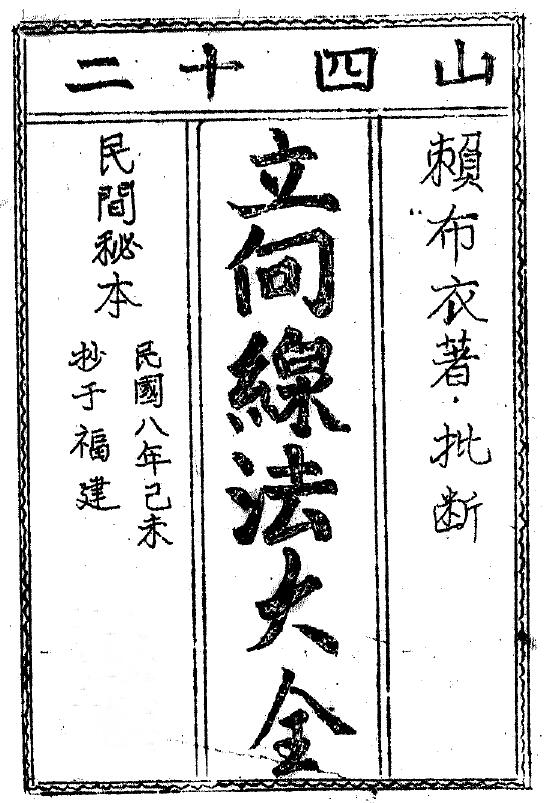 二十四山
賴布衣著·批断
立向線法大全
民間秘本
民國八年己未
抄于福建